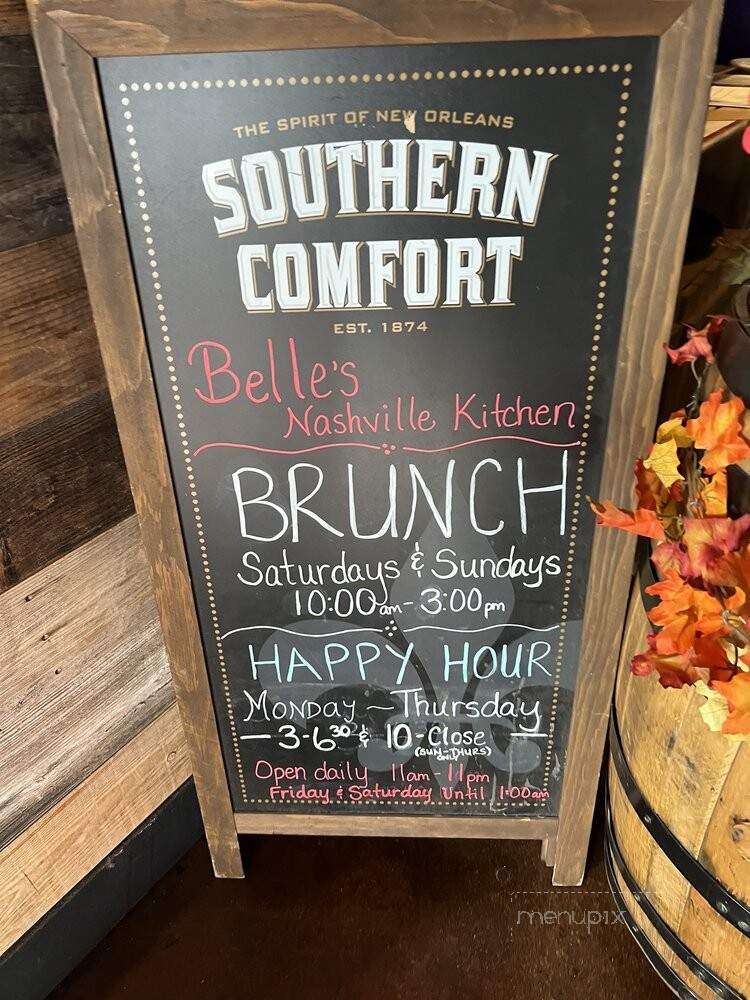 THE SPIRIT OF NEW ORLEANS
SOUTHERN
COMFORT
EST. 1874
Belle's
Nashville Kitchen
BRUNCH
Saturdays & Sundays
10:00am - 3:00pm
HAPPY HOUR
Monday - Thursday
- 3-6:30 & 10-Close -
(SUN-THURS)
ONLY
Open daily 11am - 11pm
Friday & Saturday until 1:00am
menupix